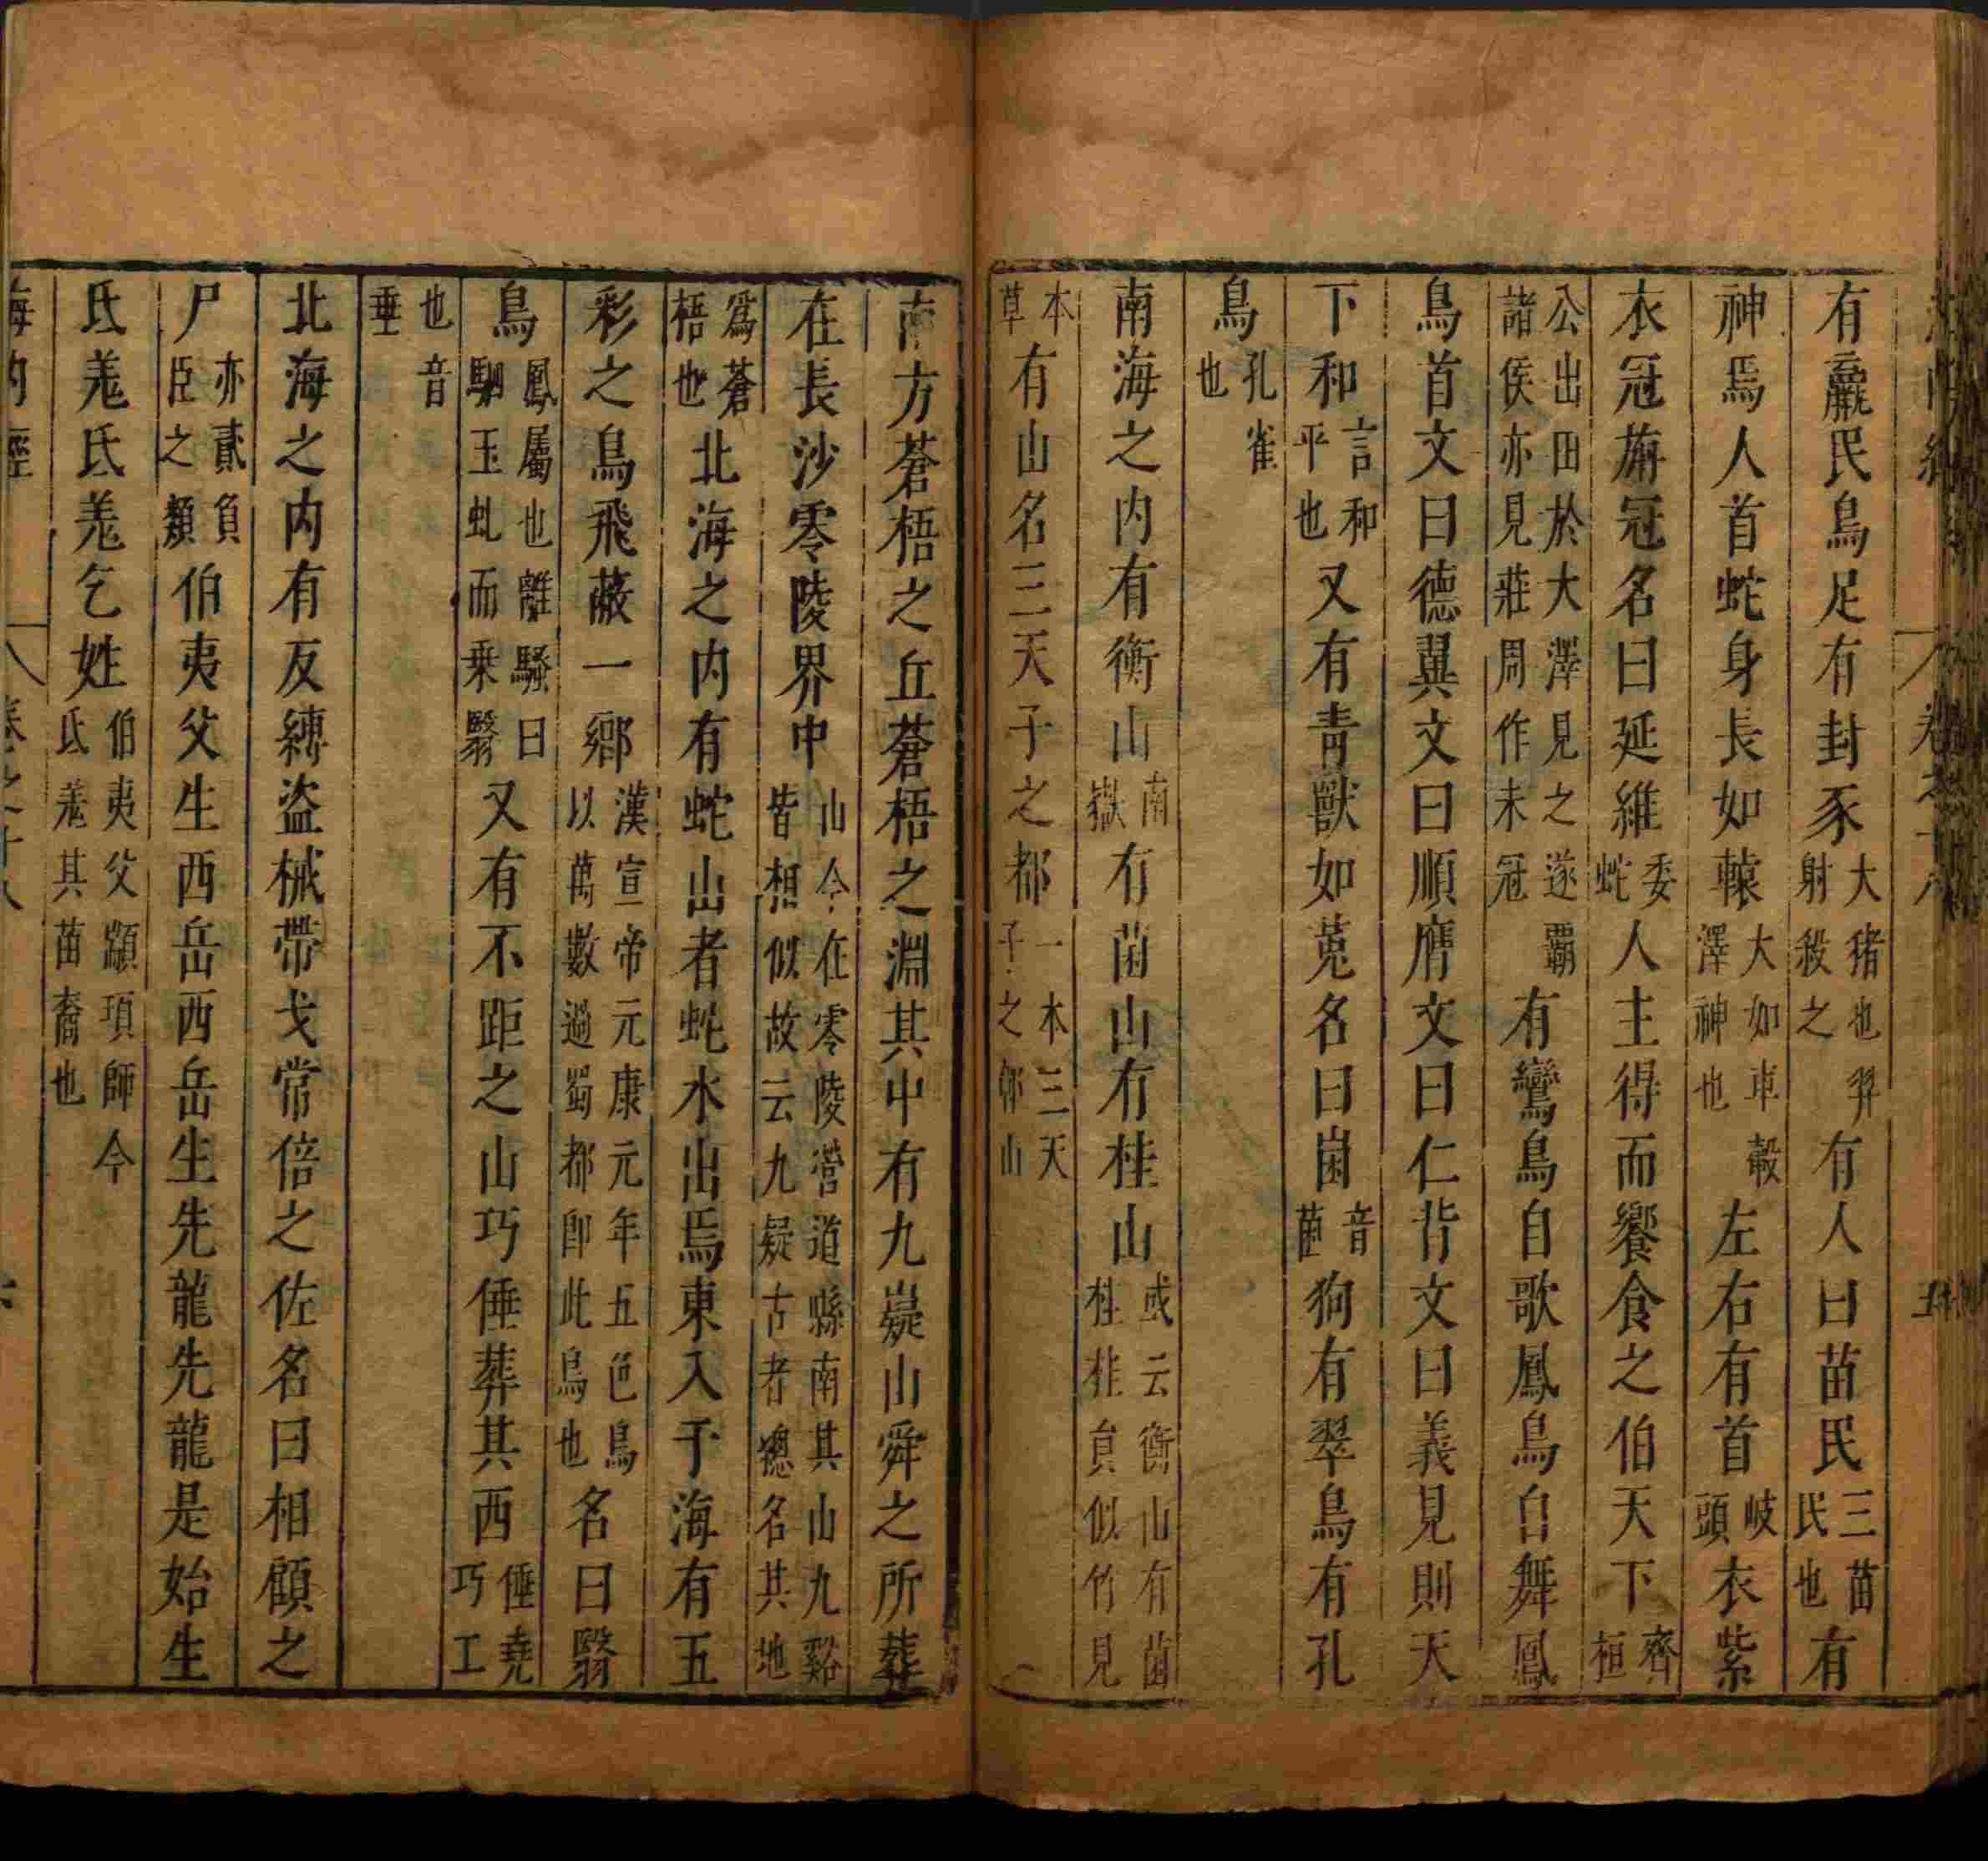 有嬴民鳥足有封豕大猪也羿射殺之有人曰苗民三苗民也有
神焉人首蛇身長如轅大如車轂澤神也左右有首岐頭衣紫
衣冠旃冠名曰延維委蛇人主得而饗食之伯天下齊桓
公出田於大澤見之遂霸諸侯亦見莊周作朱冠有鸞鳥自歌鳳鳥自舞鳳
鳥首文曰德翼文曰順膺文曰仁背文曰義見則天
下和言和平也又有青獸如菟名曰𡹤音菌狗有翠鳥有孔
鳥孔雀也
南海之内有衡山南嶽有菌山有桂山或云衡山有菌桂桂員似竹見
本草有山名三天子之都一本三天子之鄣山
南方蒼梧之丘蒼梧之淵其中有九嶷山舜之所葬
在長沙零陵界中山今在零陵營道縣南其山九谿皆相似故云九疑古者緫名其地
爲蒼梧也北海之内有蛇山者蛇水出焉東入于海有五
彩之鳥飛蔽一鄉漢宣帝元康元年五色鳥以萬數過蜀都即此鳥也名曰翳
鳥鳳屬也離騷曰駟玉虬而乗翳又有不距之山巧倕葬其西倕堯巧工
也音垂
北海之内有反縛盜械帶戈常倍之佐名曰相顧之
尸亦貳負臣之類伯夷父生西岳西岳生先龍先龍是始生
氐羌氐羌乞姓伯夷父顓頊師今氐羌其苗裔也